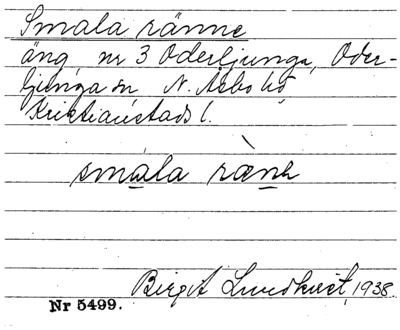 Smala ränne
äng nr 3 Oderljunga, Oder-
ljunga sn N. Åsbo hd
Kristianstads l.
smala ræne
Birgit Lundkvist, 1938.
Nr 5499.